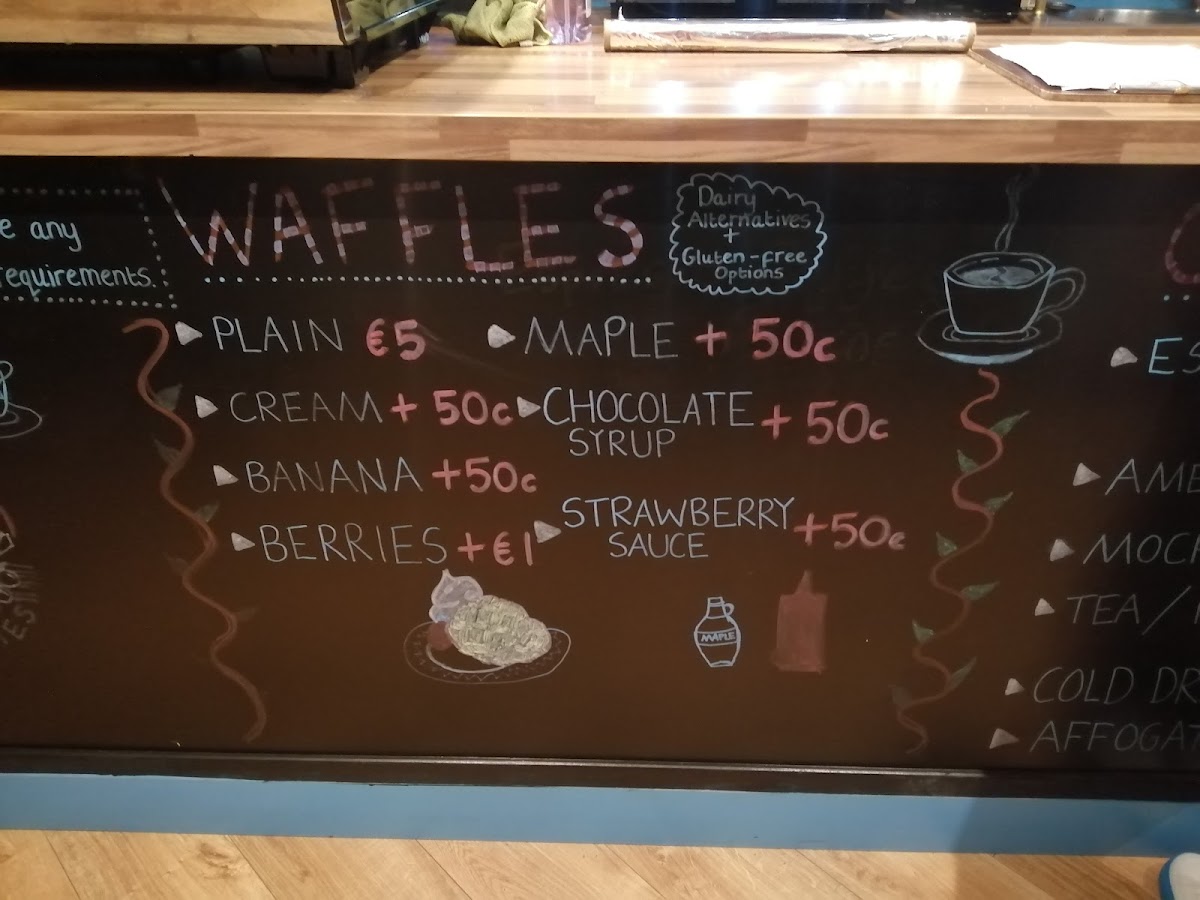 e any
requirements.
WAFFLES
Dairy
Alternatives
+
Gluten-free
Options
PLAIN €5
CREAM + 50c
BANANA +50c
BERRIES + €1
MAPLE + 50c
CHOCOLATE + 50c
SYRUP
STRAWBERRY +50c
SAUCE
MAPLE
ES
AME
MOCH
TEA/
COLD DR
AFFOGAT